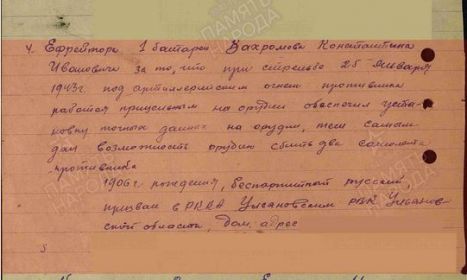 4. Ефрейтора 1 батареи Вахромова Константина
Ивановича за то, что при стрельбе 25 января
1943г. под артиллерийским огнем противника
работая прицельным на орудии обеспечил уста-
новку точных данных на орудии, тем самым
дал возможность орудию сбить два самолета
противника
1906 г. рождения, беспартийный русский,
призван в РККА Ульяновским РВК Ульянов-
ской области, дом. адрес
5
ПАМЯТЬ
НАРОДА